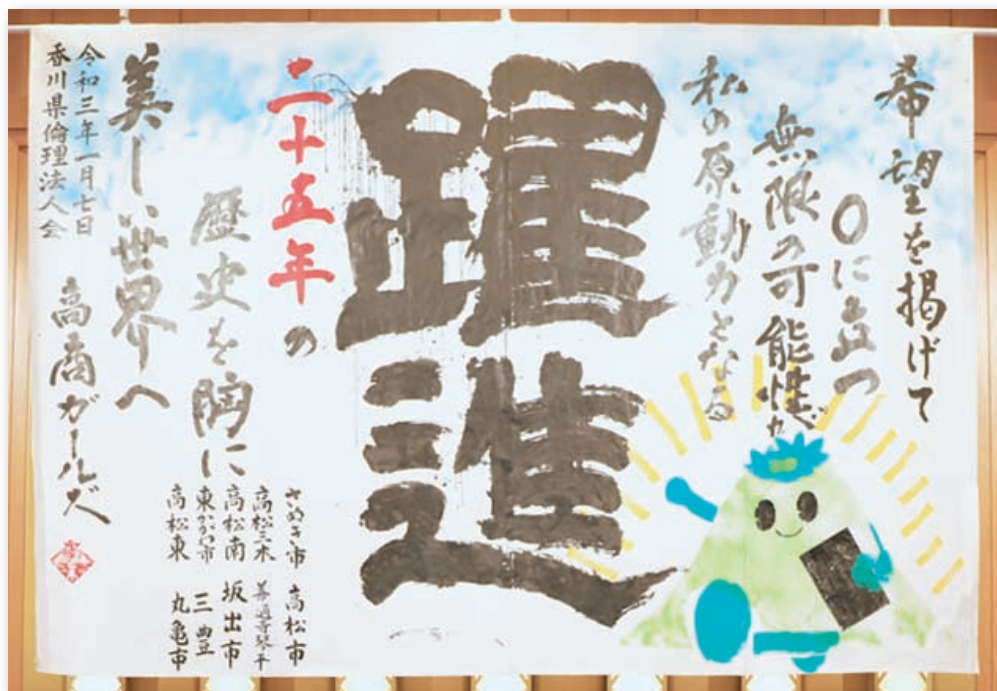 希望を掲げて
〇に立つ
無限の可能性が
私の原動力となる
躍進
二十五年の
歴史を胸に
美しい世界へ
さぬき市 高松市
高松三木 善通寺琴平
高松南 坂出市
東かがわ市 三豊
高松東 丸亀市
令和三年一月七日
香川県倫理法人会
高商ガールズ